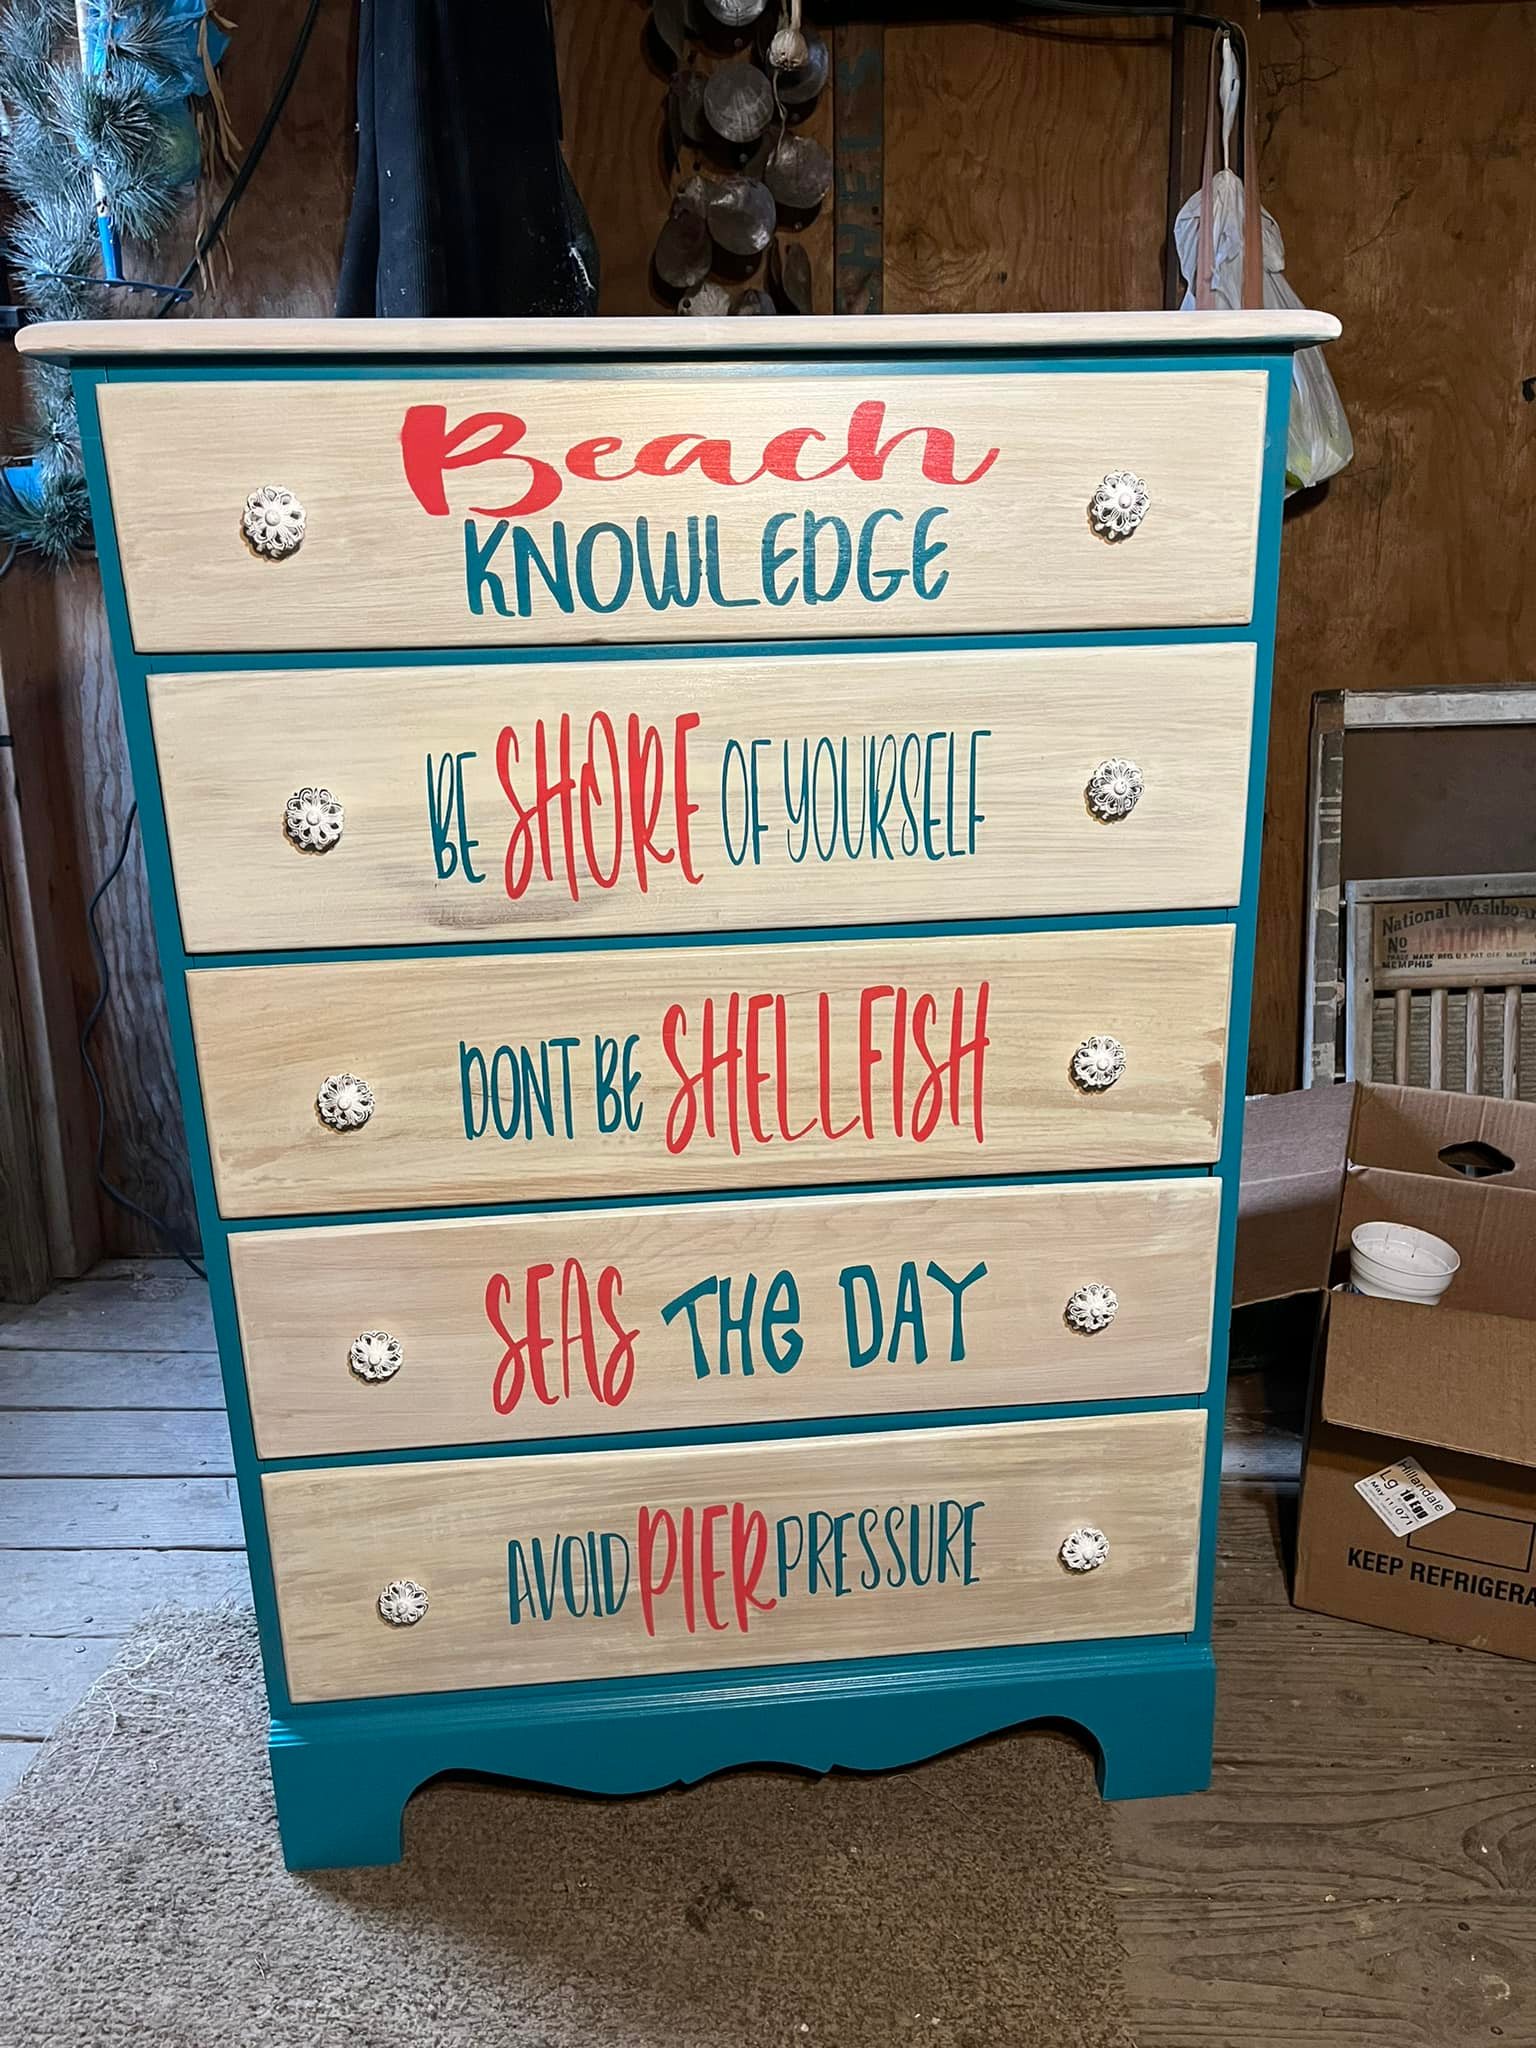 Beach
KNOWLEDGE
BE SHORE OF YOURSELF
DONT BE SHELLFISH
SEAS THE DAY
AVOID PIER PRESSURE
National Washboa
No NATIONAL
TRADE MARK REG. U.S. PAT. OFF. MADE IN
MEMPHIS CH
Hillandale
Lg 18 Egg
May 11 071
KEEP REFRIGERA